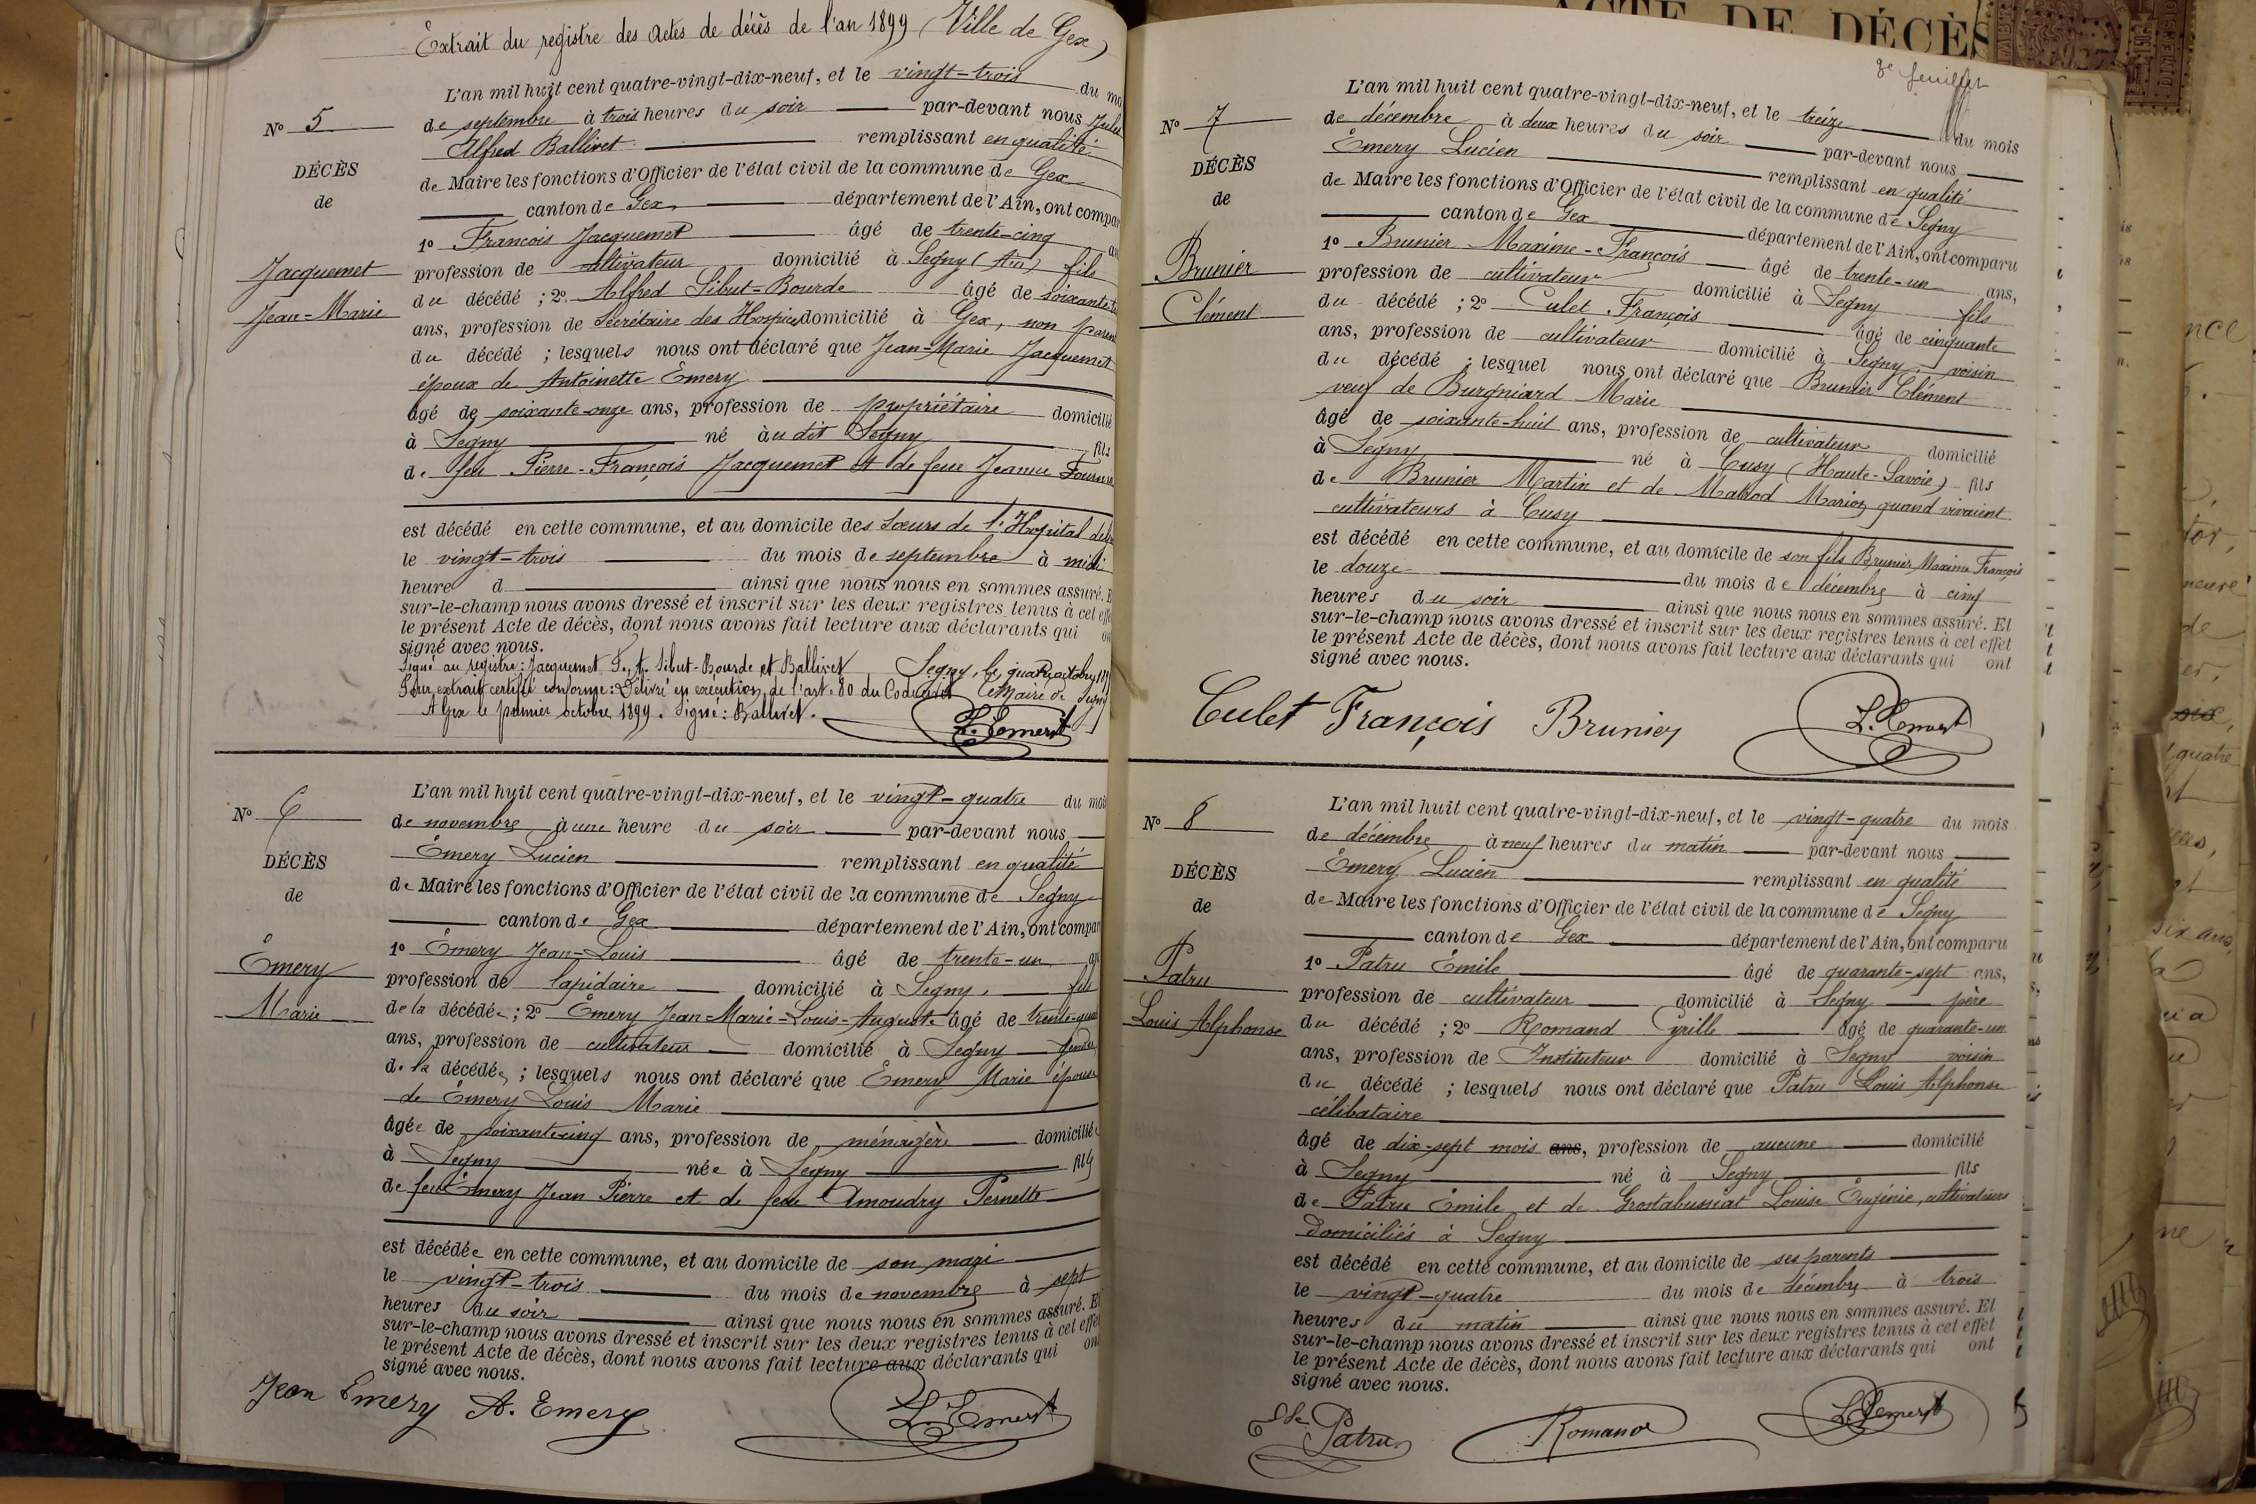 Extrait du registre des actes de décès de l'an 1899 (Ville de Gex)
L'an mil huit cent quatre-vingt-dix-neuf, et le vingt-trois du mo
N° 5
de septembre à trois heures du soir par-devant nous Jules
Alfred Ballivet remplissant en qualité
DÉCÈS
de Maire les fonctions d'Officier de l'état civil de la commune de Gex
de
canton de Gex, département de l'Ain, ont compar
1° François Jacquemet âgé de trente-cinq an
Jacquemet
profession de cultivateur domicilié à Segny (Ain) fils
du décédé ; 2° Alfred Sibut-Bourde âgé de soixante
Jean-Marie
ans, profession de Secrétaire des Hospices domicilié à Gex, non paren
du décédé ; lesquels nous ont déclaré que Jean-Marie Jacquemet
époux de Antoinette Emery
âgé de soixante-onze ans, profession de propriétaire domicilié
à Segny né àu dit Segny fils
de feu Pierre-François Jacquemet et de feue Jeanne Fournier
est décédé en cette commune, et au domicile des Sœurs de l'Hôpital
le vingt-trois du mois de septembre à midi
heure d ainsi que nous nous en sommes assuré. E
sur-le-champ nous avons dressé et inscrit sur les deux registres tenus à cet effe
le présent Acte de décès, dont nous avons fait lecture aux déclarants qui on
signé avec nous.
Signé au registre : Jacquemet F., A. Sibut-Bourde et Ballivet
Segny, le quatre octobre
Pour extrait certifié conforme : Délivré en exécution de l'art. 80 du Code civil
Le Maire de Segny
A Gex le premier octobre 1899. Signé : Ballivet.
L. Emery
L'an mil huit cent quatre-vingt-dix-neuf, et le vingt-quatre du moi
N° 6
de novembre à une heure du soir par-devant nous
Émery Lucien remplissant en qualité
DÉCÈS
de Maire les fonctions d'Officier de l'état civil de la commune de Segny
de
canton de Gex département de l'Ain, ont compar
1° Émery Jean-Louis âgé de trente-un an
Émery
profession de lapidaire domicilié à Segny, fils
Marie
de la décédée ; 2° Émery Jean-Marie-Louis-Auguste âgé de trente-quat
ans, profession de cultivateur domicilié à Segny gendre
de la décédée ; lesquels nous ont déclaré que Émery Marie épouse
de Émery Louis Marie
âgée de soixante-cinq ans, profession de ménagère domiciliée
à Segny née à Segny fils
de feu Émery Jean Pierre et de feue Amoudry Pernette
est décédée en cette commune, et au domicile de son mari
le vingt-trois du mois de novembre à sept
heures du soir ainsi que nous nous en sommes assuré. Et
sur-le-champ nous avons dressé et inscrit sur les deux registres tenus à cet effet
le présent Acte de décès, dont nous avons fait lecture aux déclarants qui ont
signé avec nous.
Jean Emery A. Emery L. Emery
ACTE DE DÉCÈS
8e feuillet
L'an mil huit cent quatre-vingt-dix-neuf, et le treize du mois
N° 7
de décembre à deux heures du soir par-devant nous
Émery Lucien remplissant en qualité
DÉCÈS
de Maire les fonctions d'Officier de l'état civil de la commune de Segny
de
canton de Gex département de l'Ain, ont comparu
1° Brunier Maxime-François âgé de trente-un ans,
Brunier
profession de cultivateur domicilié à Segny fils
du décédé ; 2° Culet François âgé de cinquante
Clément
ans, profession de cultivateur domicilié à Segny, voisin
du décédé ; lesquel nous ont déclaré que Brunier Clément
veuf de Burgniard Marie
âgé de soixante-huit ans, profession de cultivateur domicilié
à Segny né à Cusy (Haute-Savoie) fils
de Brunier Martin et de Mabod Marion quand vivaient
cultivateurs à Cusy
est décédé en cette commune, et au domicile de son fils Brunier Maxime François
le douze du mois de décembre à cinq
heures du soir ainsi que nous nous en sommes assuré. Et
sur-le-champ nous avons dressé et inscrit sur les deux registres tenus à cet effet
le présent Acte de décès, dont nous avons fait lecture aux déclarants qui ont
signé avec nous.
Culet François Brunier L. Emery
L'an mil huit cent quatre-vingt-dix-neuf, et le vingt-quatre du mois
N° 8
de décembre à neuf heures du matin par-devant nous
Émery Lucien remplissant en qualité
DÉCÈS
de Maire les fonctions d'Officier de l'état civil de la commune de Segny
de
canton de Gex département de l'Ain, ont comparu
1° Patru Émile âgé de quarante-sept ans,
Patru
profession de cultivateur domicilié à Segny père
Louis Alphonse
du décédé ; 2° Romand Cyrille âgé de quarante-un
ans, profession de Instituteur domicilié à Segny voisin
du décédé ; lesquels nous ont déclaré que Patru Louis Alphonse
célibataire
âgé de dix-sept mois ans, profession de aucune domicilié
à Segny né à Segny fils
de Patru Émile et de Grostabussiat Louise Eugénie, cultivateurs
domiciliés à Segny
est décédé en cette commune, et au domicile de ses parents
le vingt-quatre du mois de décembre à trois
heures du matin ainsi que nous nous en sommes assuré. Et
sur-le-champ nous avons dressé et inscrit sur les deux registres tenus à cet effet
le présent Acte de décès, dont nous avons fait lecture aux déclarants qui ont
signé avec nous.
Patru Romand L. Emery